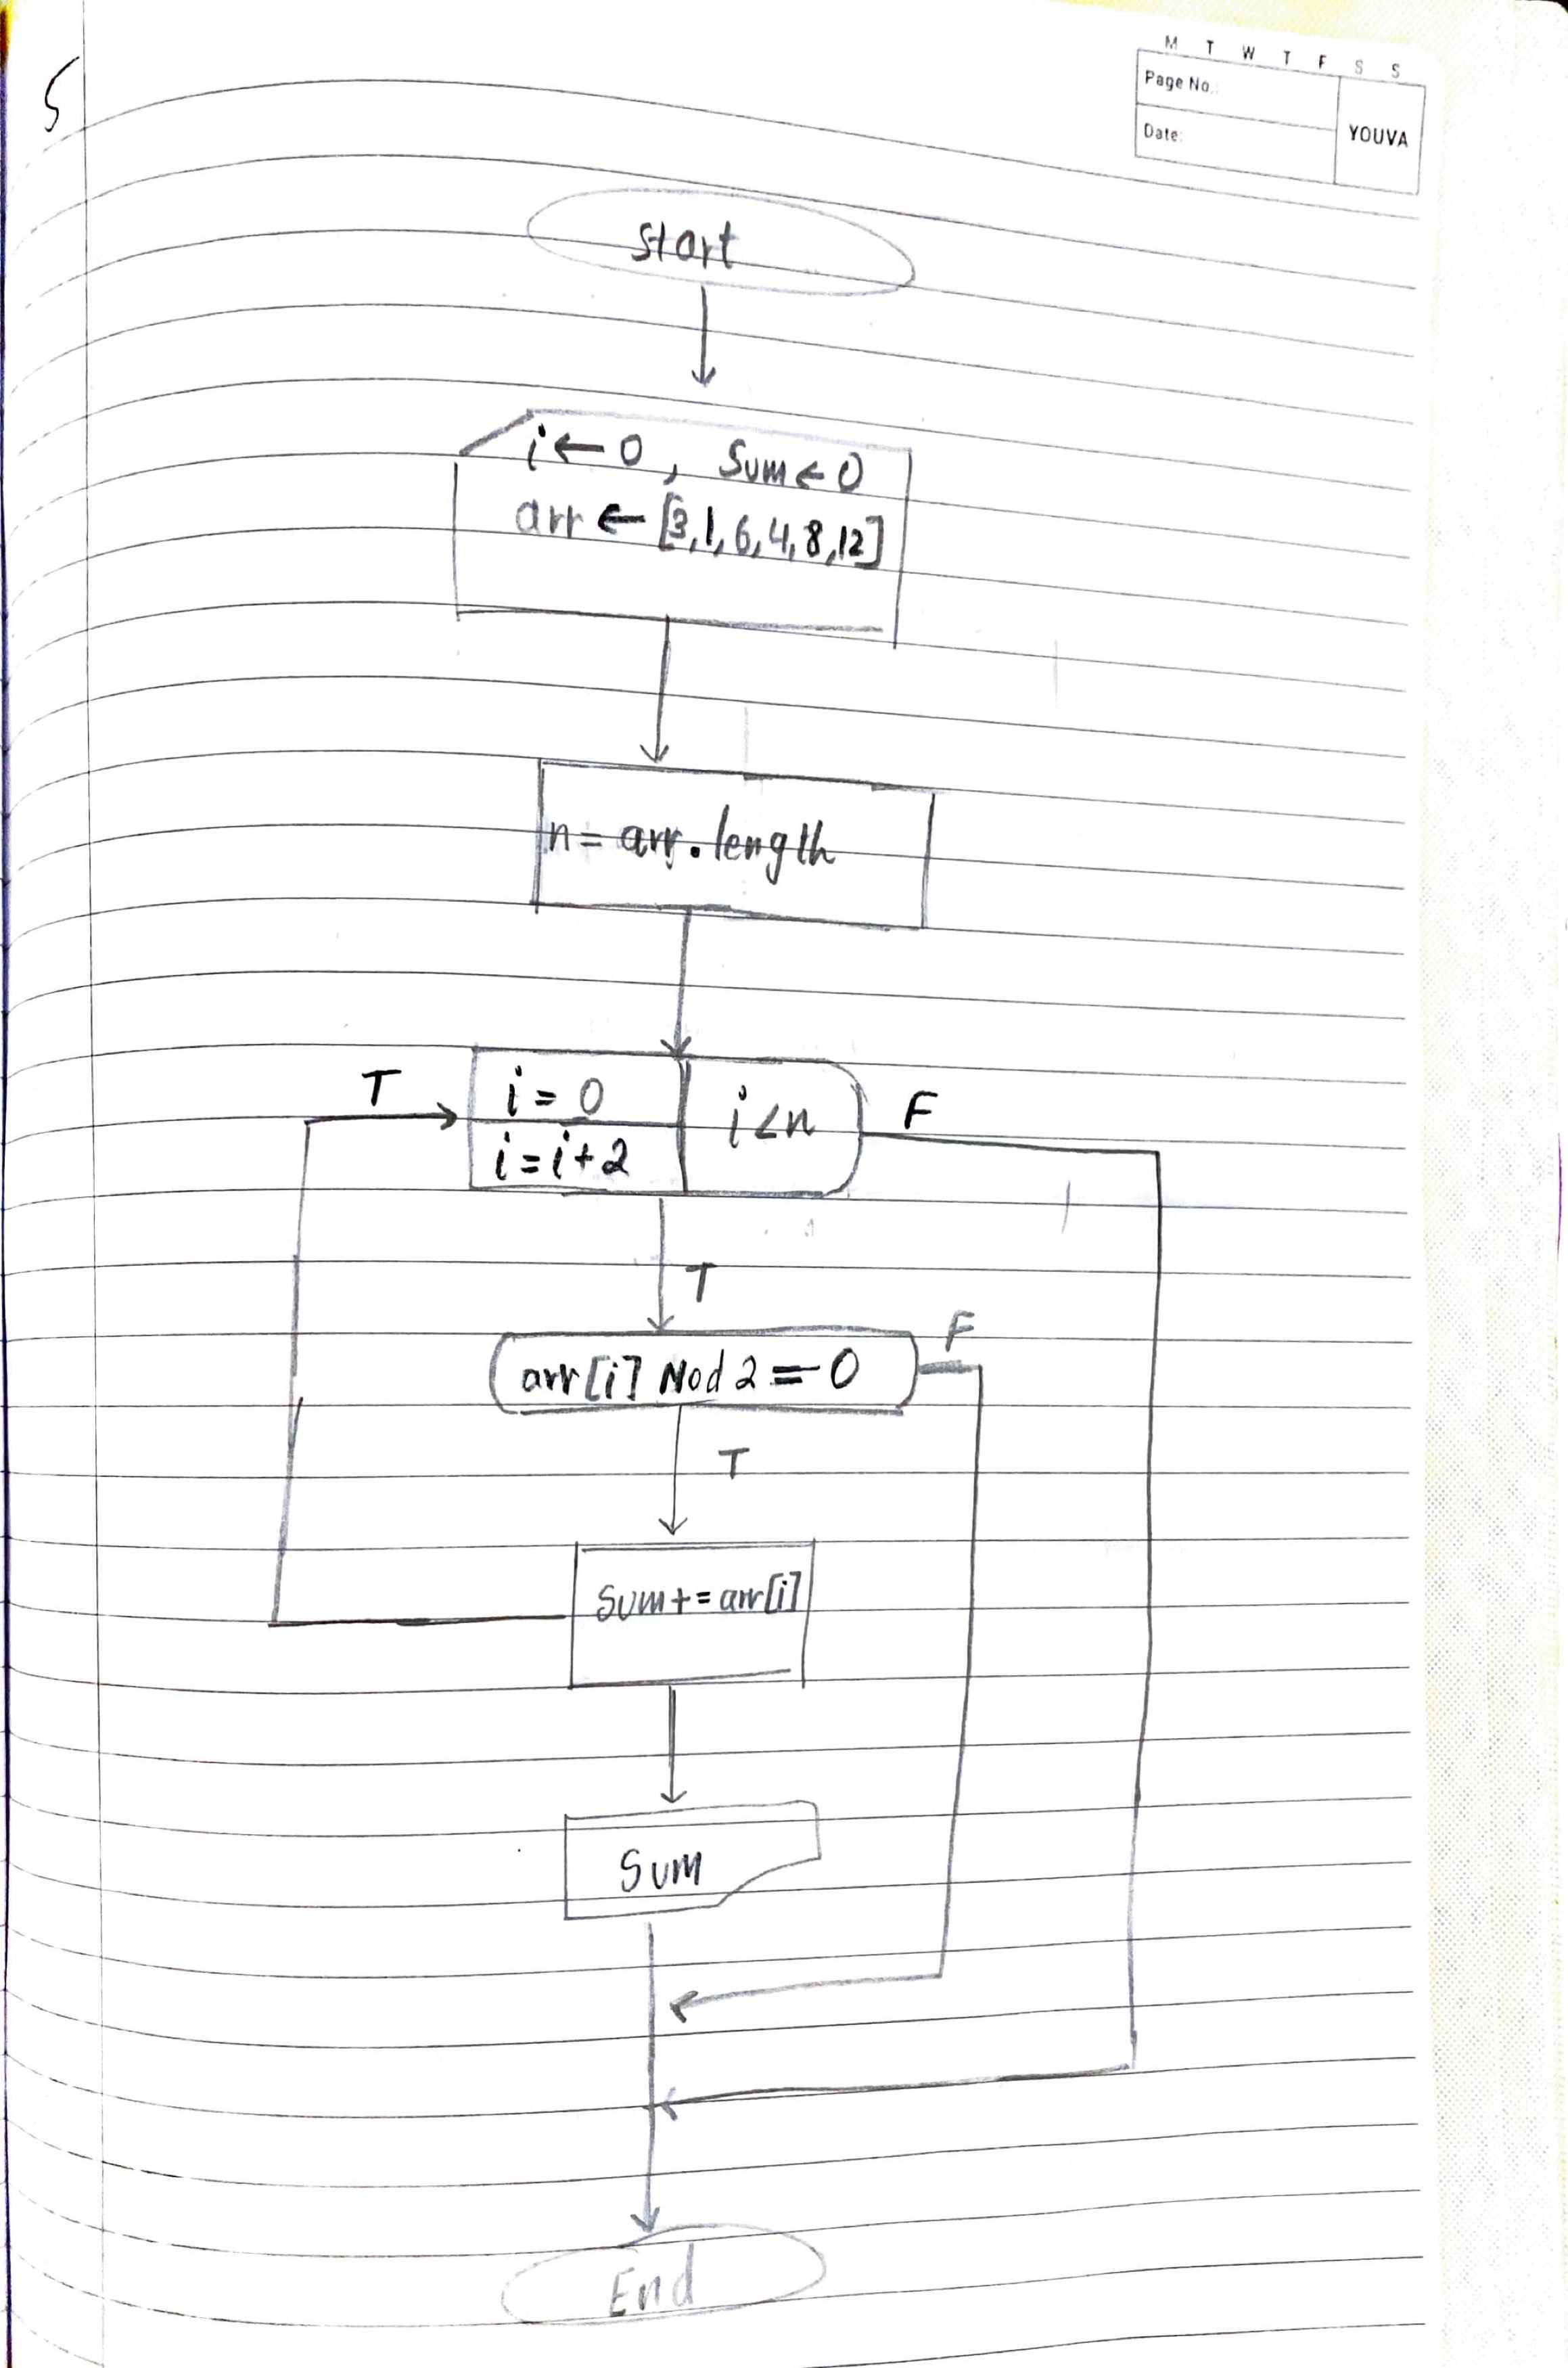 5
M T W T F S S
Page No.:
Date:
YOUVA
Start
i ← 0 , Sum ← 0
arr ← [3,1,6,4,8,12]
n = arr.length
T
i = 0
i = i+2
i < n
F
T
arr[i] Mod 2 == 0
F
T
Sum += arr[i]
Sum
End